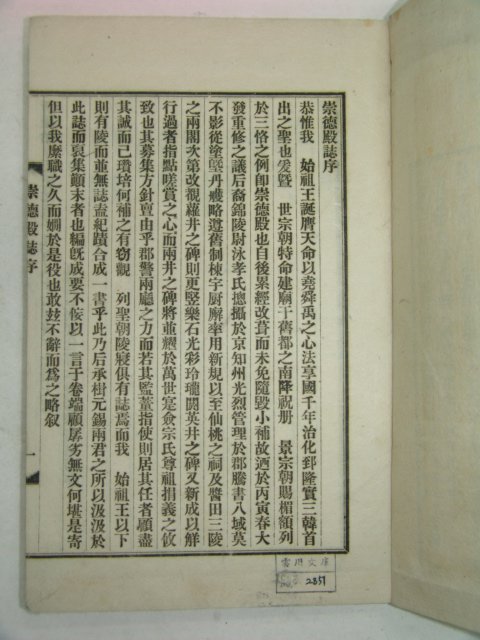 崇德殿誌序
恭惟我　始祖王誕膺天命以堯舜禹之心法享國千年治化郅隆實三韓首
出之聖也爰曁　世宗朝特命建廟于舊都之南降祝册　景宗朝賜楣額列
於三恪之例卽崇德殿也自後累經改葺而未免隨毁小補故迺於丙寅春大
發重修之議后裔錦陵尉泳孝氏總攝於京知州光烈管理於郡騰書八域莫
不影從塗墍丹雘略遵舊制棟宇厨廨率用新規以至仙桃之祠及曁田三陵
之兩閣次第改觀蘿井之碑則更竪樂石光彩玲瓏閼英井之碑又新成以鮮
行過者指點嗟賞之心而兩井之碑將並耀於萬世寔僉宗氏尊祖捐義之攸
致也其募集方針亶由乎郡警兩廳之力而若其監董指使則居其任者顧盡
其誠而已瓚培何補之有窃觀　列聖朝陵寢俱有誌焉而我　始祖王以下
則有陵而並無誌盍紀蹟合成一書乎此乃后承樹元錫兩君之所以汲汲於
此誌而裒集顚末者也編旣成要不侫以一言于卷端顧孱劣無文何堪是寄
但以我縻職之久而嫺於是役也敢玆不辭而爲之略叙
崇德殿誌序
一
雲川文庫
2851